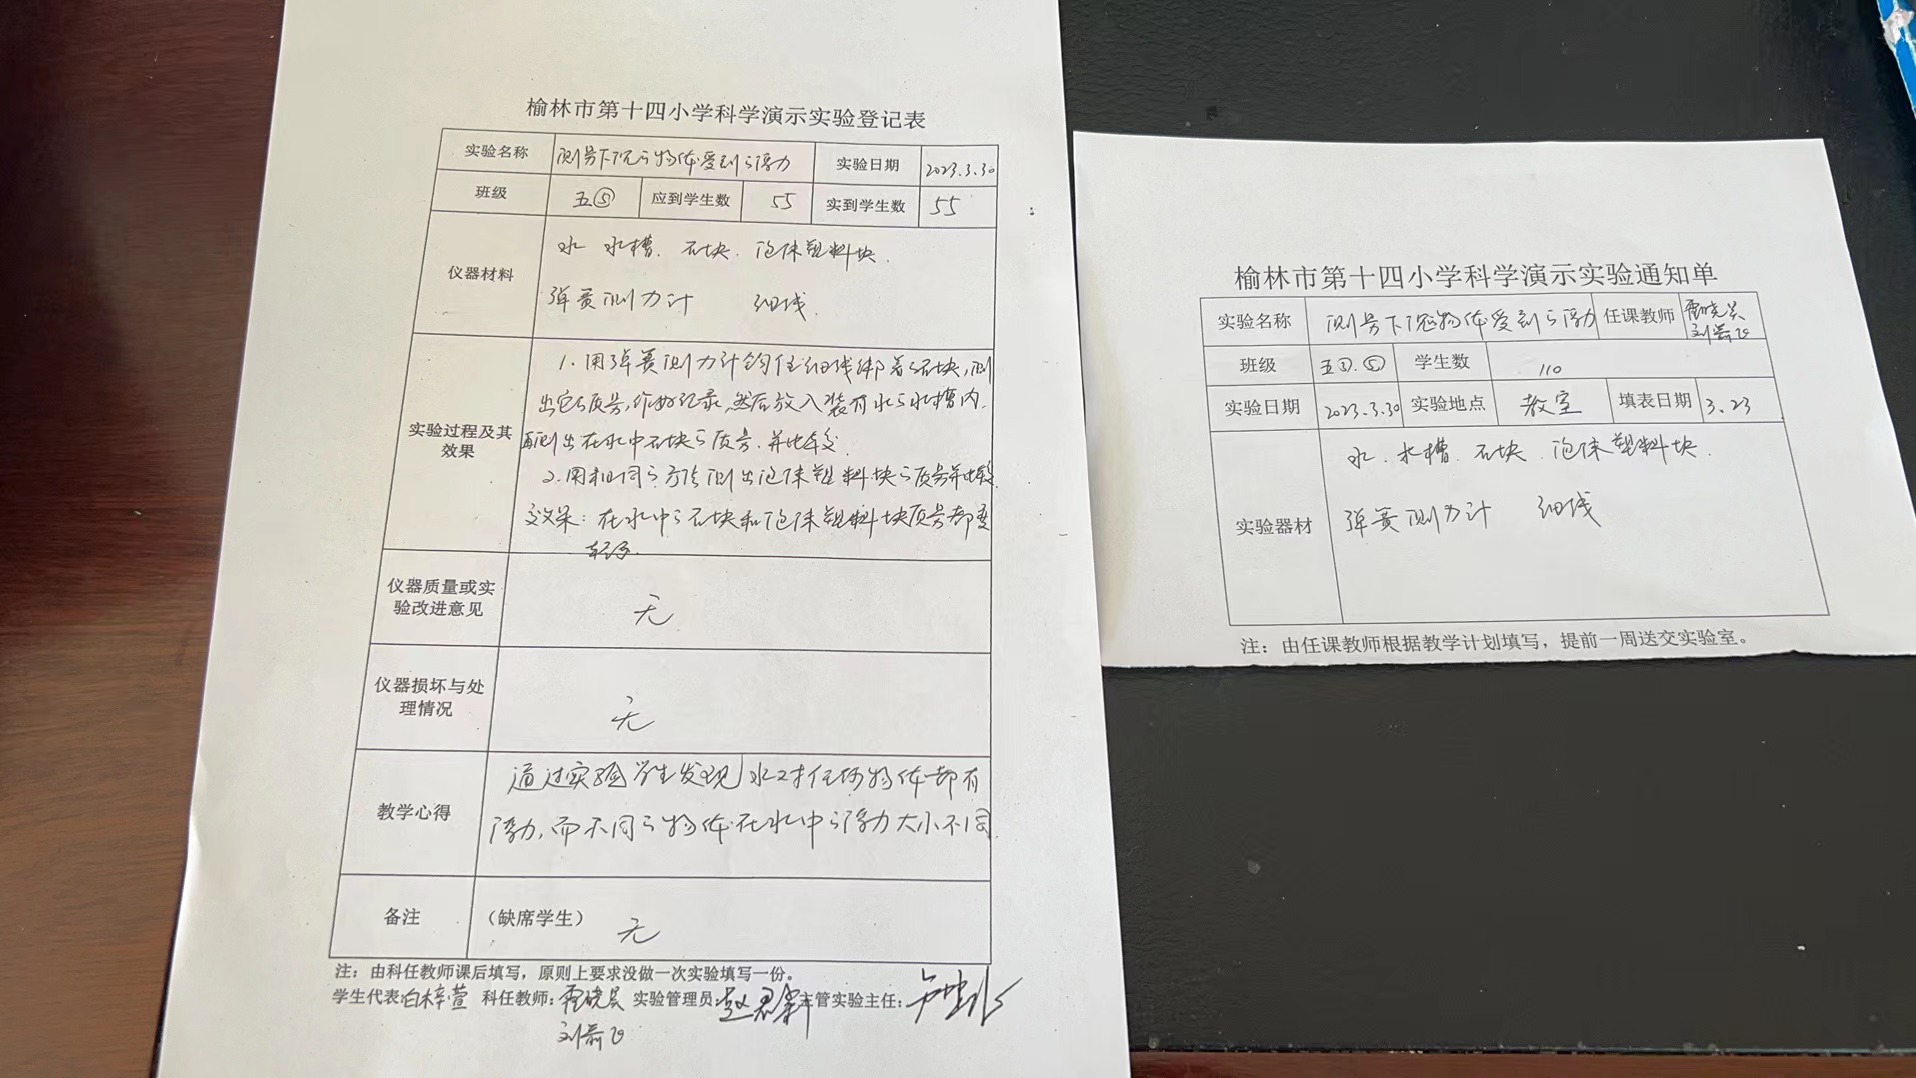 榆林市第十四小学科学演示实验登记表
实验名称 测量下沉的物体受到的浮力 实验日期 2023.3.30
班级 五⑤ 应到学生数 55 实到学生数 55
仪器材料
水 水槽. 石块. 泡沫塑料块.
弹簧测力计 细线.
实验过程及其
效果
1. 用弹簧测力计钩住细线绑着的石块,测
出它的质量,作好记录,然后放入装有水的水槽内.
再测出在水中石块的质量.并比较.
2. 用相同的方法测出泡沫塑料块的质量并比较
效果:在水中的石块和泡沫塑料块质量都变
轻了.
仪器质量或实
验改进意见
无
仪器损坏与处
理情况
无
教学心得
通过实验学生发现水对任何物体都有
浮力,而不同的物体在水中的浮力大小不同.
备注 (缺席学生) 无
注：由科任教师课后填写，原则上要求没做一次实验填写一份。
学生代表:白梓萱 科任教师: 实验管理员: 主管实验主任:
榆林市第十四小学科学演示实验通知单
实验名称 测量下沉物体受到的浮力 任课教师
班级 学生数 110
实验日期 2023.3.30 实验地点 教室 填表日期 3.23
实验器材
水. 水槽. 石块. 泡沫塑料块.
弹簧测力计 细线
注：由任课教师根据教学计划填写，提前一周送交实验室。